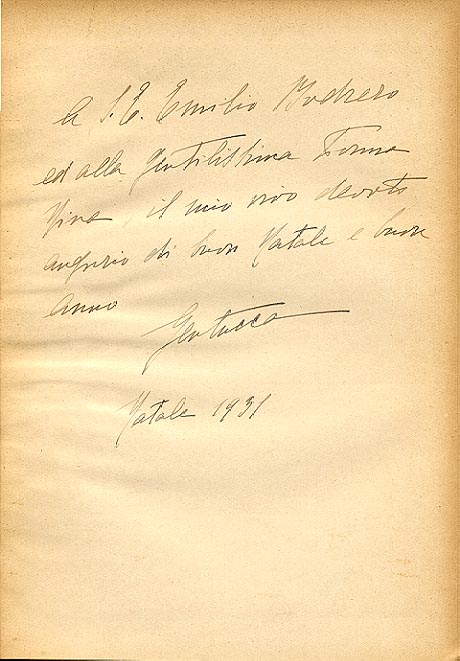 A S. E. Emilio Bodrero
ed alla gentilissima Donna
Nina, il mio vivo devoto
augurio di buon Natale e buon
anno
Gentucca
Natale 1931